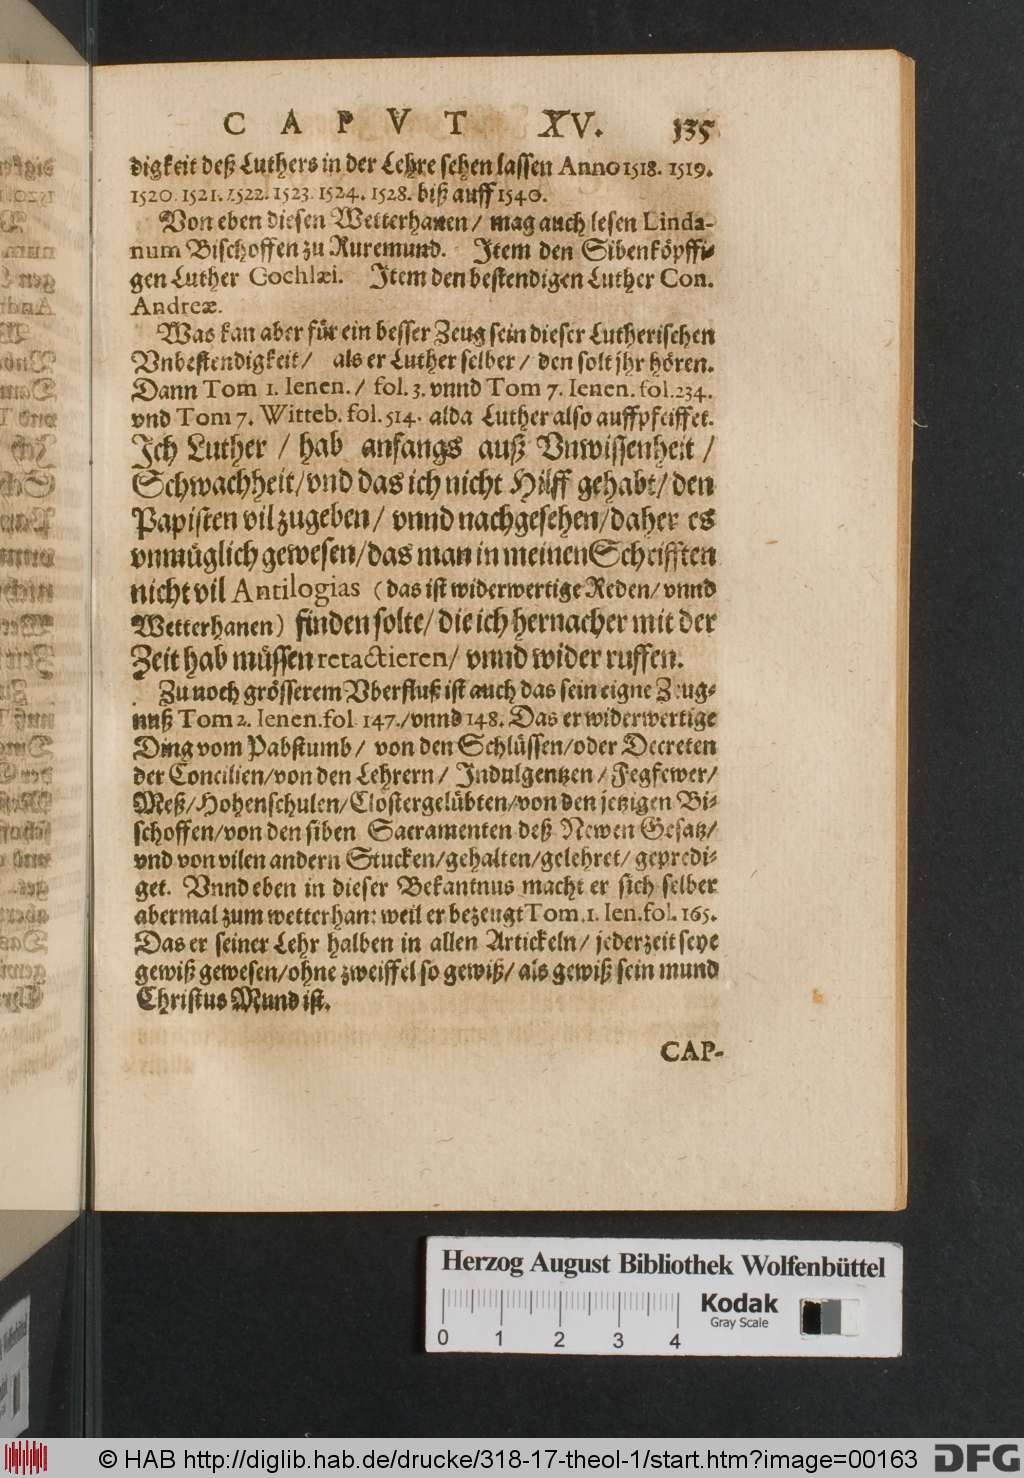 CAPVT XV. 135
digkeit deß Luthers in der Lehre sehen lassen Anno 1518. 1519.
1520. 1521. 1522. 1523. 1524. 1528. biß auff 1540.
Von eben diesen Wetterhanen / mag auch lesen Linda-
num Bischoffen zu Ruremund. Item den Sibenköpffi-
gen Luther Cochlæi. Item den bestendigen Luther Con.
Andreæ.
Was kan aber für ein besser Zeug sein dieser Lutherischen
Vnbestendigkeit / als er Luther selber / den solt jhr hören.
Dann Tom 1. Ienen. / fol. 3. vnnd Tom 7. Ienen. fol. 234.
vnd Tom 7. Witteb. fol. 514. alda Luther also auffpfeiffet.
Ich Luther / hab anfangs auß Vnwissenheit /
Schwachheit / vnd das ich nicht Hilff gehabt / den
Papisten vil zugeben / vnnd nachgesehen / daher es
vnmüglich gewesen / das man in meinen Schrifften
nicht vil Antilogias (das ist widerwertige Reden / vnnd
Wetterhanen) finden solte / die ich hernacher mit der
Zeit hab müssen retactieren / vnnd wider ruffen.
Zu noch grösserem Vberfluß ist auch das sein eigne Zeug-
nuß Tom 2. Ienen. fol 147. / vnnd 148. Das er widerwertige
Ding vom Pabstumb / von den Schlüssen / oder Decreten
der Concilien / von den Lehrern / Indulgentzen / Fegfewer /
Meß / Hohenschulen / Clostergelübten / von den jetzigen Bi-
schoffen / von den siben Sacramenten deß Newen Gesatz /
vnd von vilen andern Stucken / gehalten / gelehret / gepredi-
get. Vnnd eben in dieser Bekantnus macht er sich selber
abermal zum wetterhan: weil er bezeugt Tom. 1. Ien. fol. 165.
Das er seiner Lehr halben in allen Artickeln / jederzeit seye
gewiß gewesen / ohne zweiffel so gewiß / als gewiß sein mund
Christus Mund ist.
CAP-
Herzog August Bibliothek Wolfenbüttel
0 1 2 3 4
Kodak
Gray Scale
© HAB http://diglib.hab.de/drucke/318-17-theol-1/start.htm?image=00163
DFG